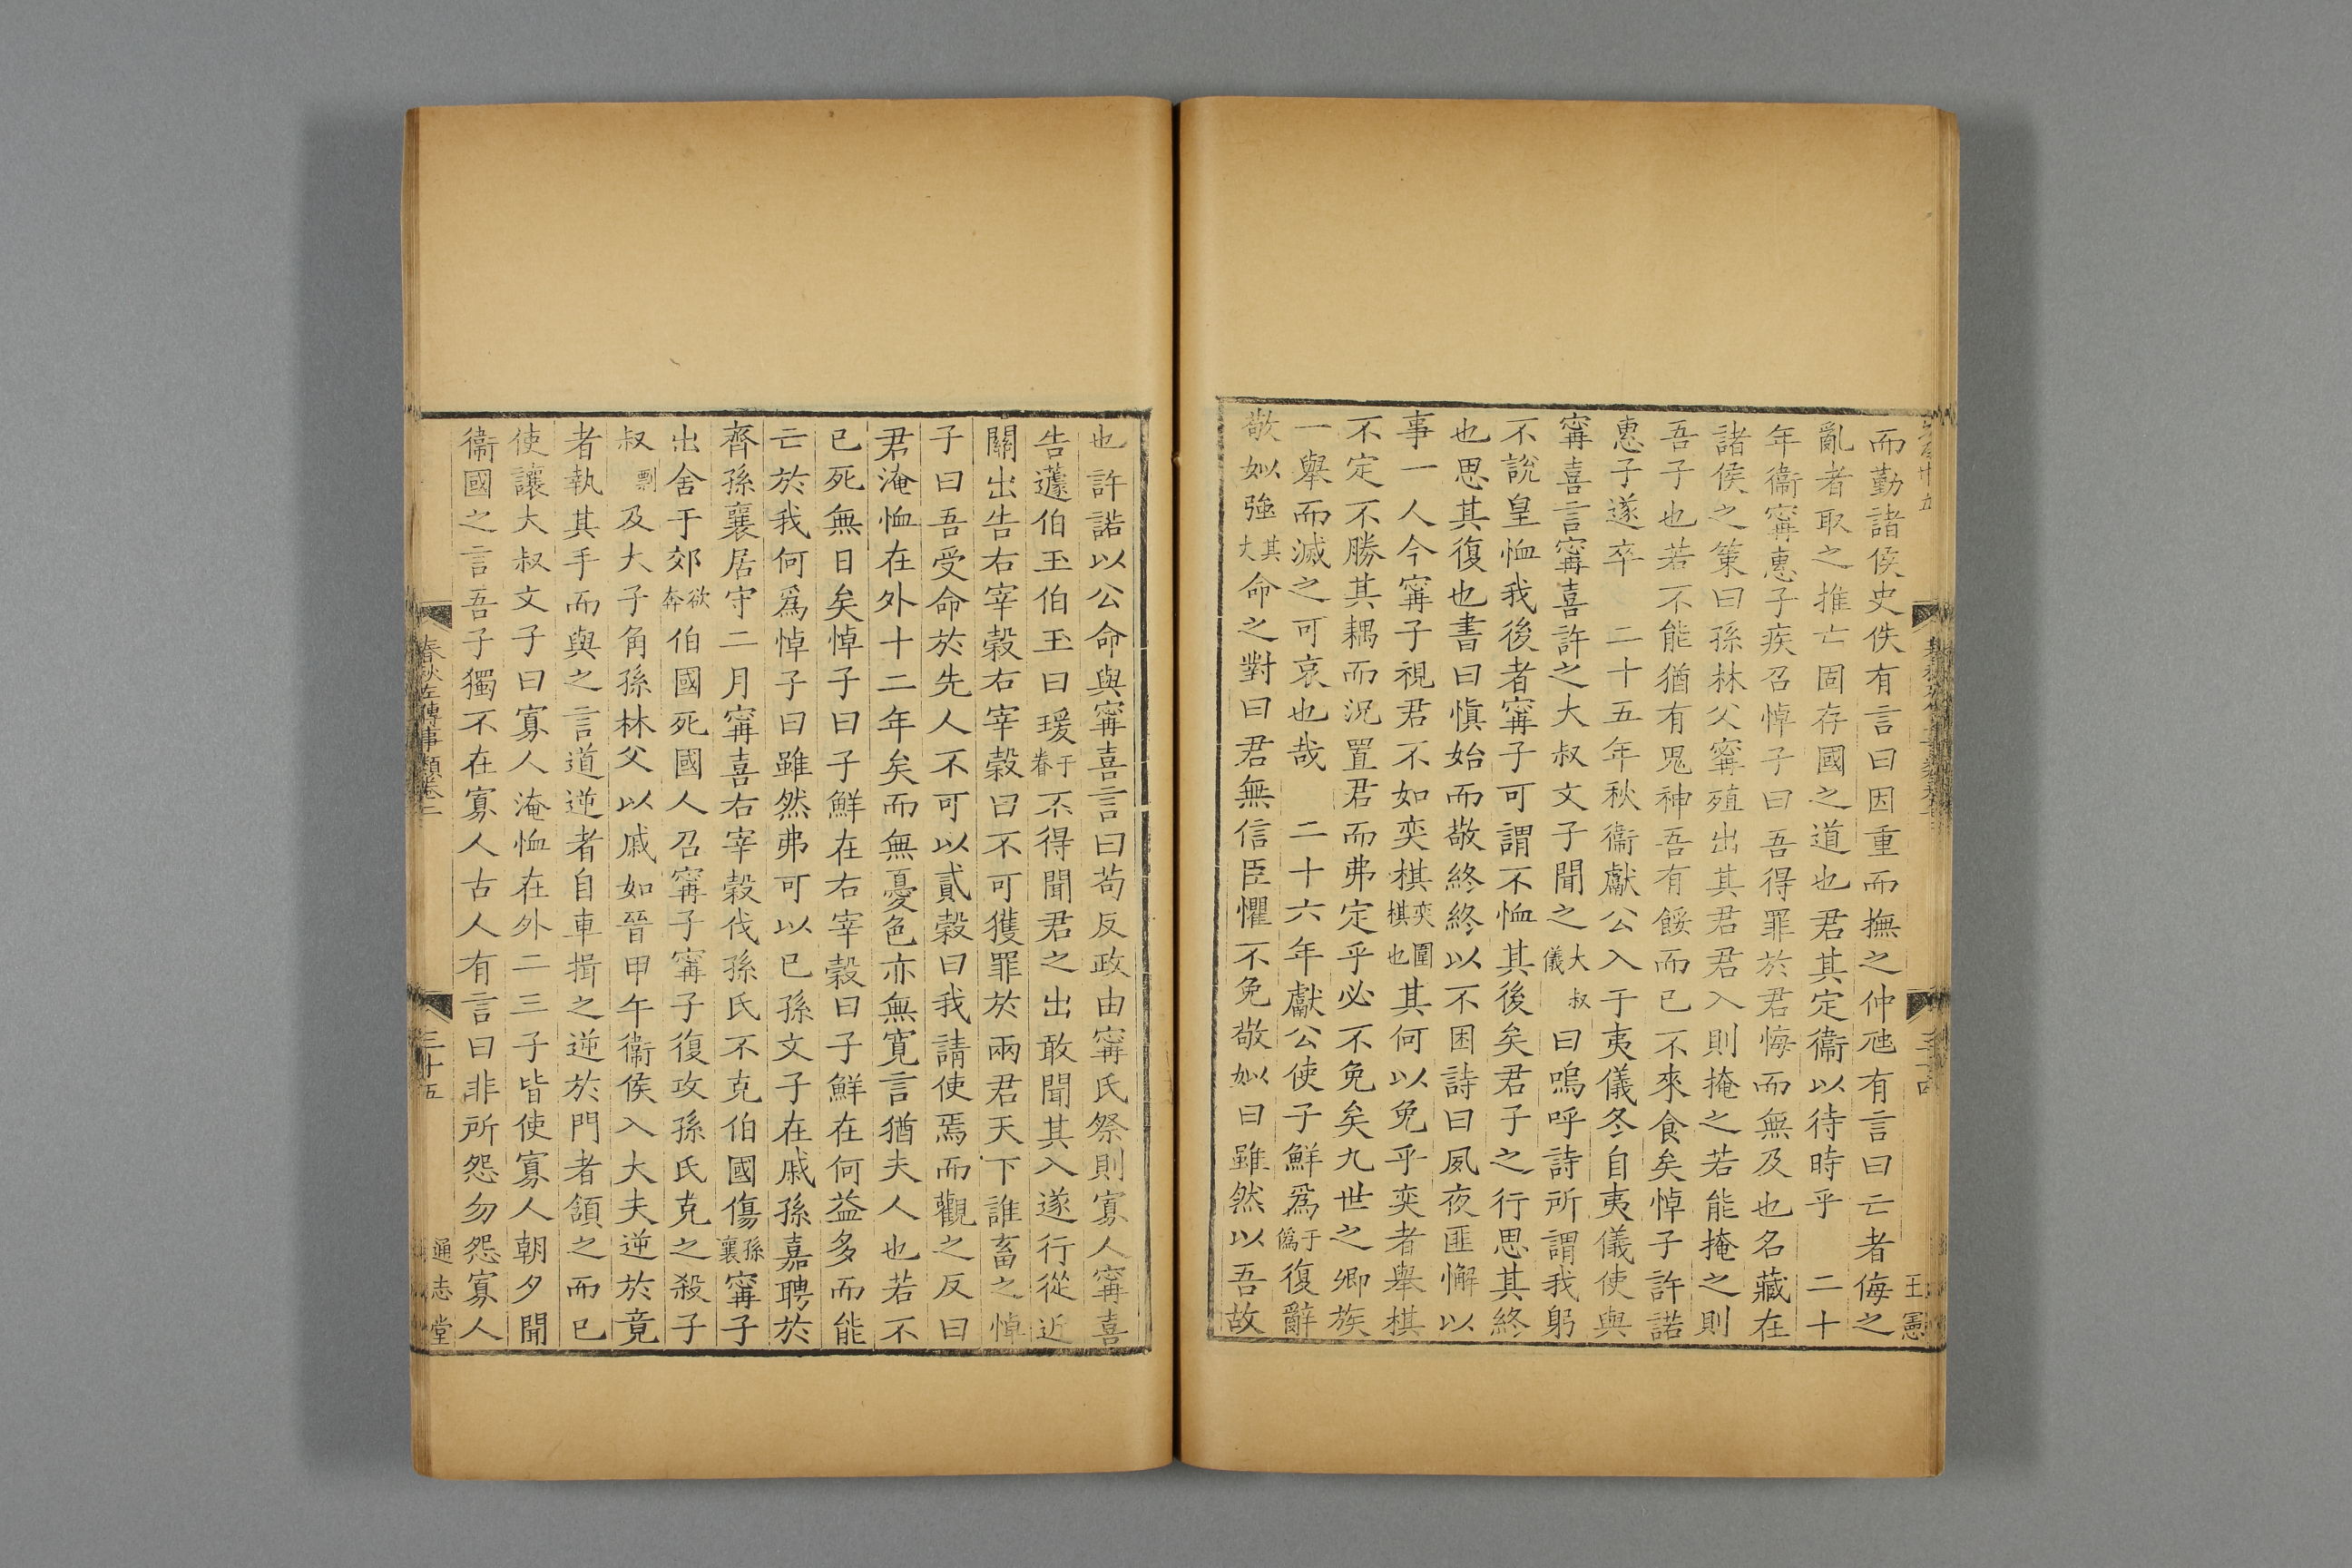 而勤諸侯史佚有言曰因重而撫之仲虺有言曰亡者侮之
亂者取之推亡固存國之道也君其定衞以待時乎　二十
年衞甯惠子疾召悼子曰吾得罪於君悔而無及也名藏在
諸侯之策曰孫林父甯殖出其君君入則掩之若能掩之則
吾子也若不能猶有鬼神吾有餒而已不來食矣悼子許諾
惠子遂卒　二十五年秋衞獻公入于夷儀冬自夷儀使與
甯喜言甯喜許之大叔文子聞之大叔儀曰嗚呼詩所謂我躬
不說皇恤我後者甯子可謂不恤其後矣君子之行思其終
也思其復也書曰愼始而敬終終以不困詩曰夙夜匪懈以
事一人今甯子視君不如奕棋奕圍棋也其何以免乎奕者舉棋
不定不勝其耦而況置君而弗定乎必不免矣九世之卿族
一舉而滅之可哀也哉　二十六年獻公使子鮮爲于僞復辭
敬姒強其丈命之對曰君無信臣懼不免敬姒曰雖然以吾故
王憲
也許諾以公命與甯喜言曰苟反政由甯氏祭則寡人甯喜
告蘧伯玉伯玉曰瑗于眷不得聞君之出敢聞其入遂行從近
關出告右宰穀右宰穀曰不可獲罪於兩君天下誰畜之悼
子曰吾受命於先人不可以貳穀曰我請使焉而觀之反曰
君淹恤在外十二年矣而無憂色亦無寛言猶夫人也若不
已死無日矣悼子曰子鮮在右宰穀曰子鮮在何益多而能
亡於我何爲悼子曰雖然弗可以已孫文子在戚孫嘉聘於
齊孫襄居守二月甯喜右宰穀伐孫氏不克伯國傷孫襄甯子
出舍于郊欲奔伯國死國人召甯子甯子復攻孫氏克之殺子
叔剽及大子角孫林父以戚如晉甲午衞侯入大夫逆於竟
者執其手而與之言道逆者自車揖之逆於門者頷之而已
使讓大叔文子曰寡人淹恤在外二三子皆使寡人朝夕聞
衞國之言吾子獨不在寡人古人有言曰非所怨勿怨寡人
春秋左傳事類卷二
三十五
通志堂